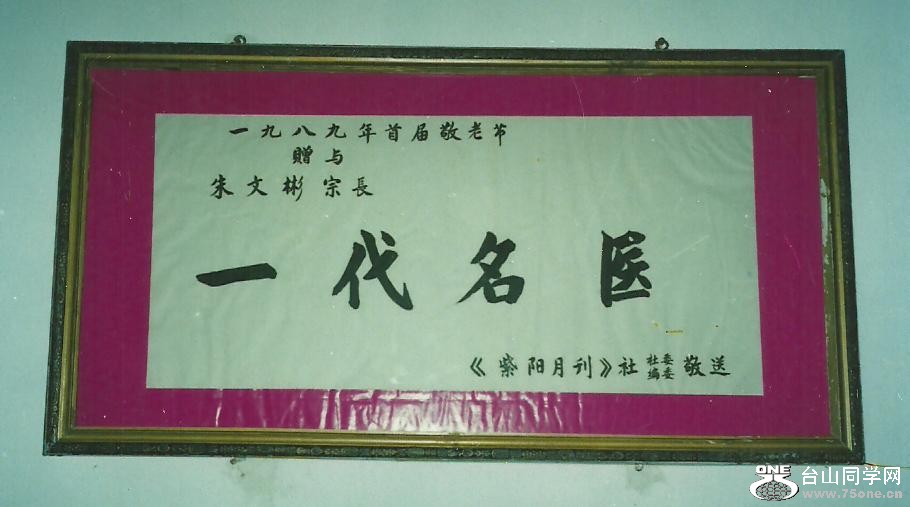 一九八九年首届敬老节
赠与
朱文彬宗長
一代名医
《紫阳月刊》社社委编委敬送
ONE
台山同学网
www.75one.cn